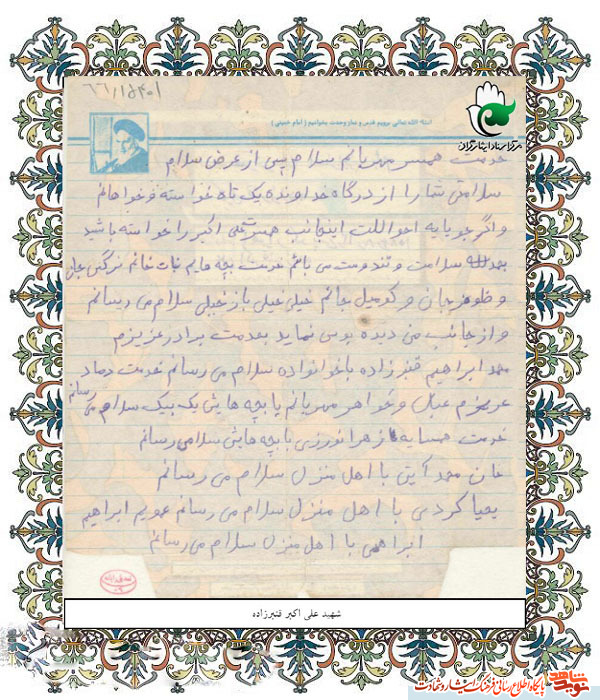 ۶۶/۱۵۴۰۱
انشاء الله تعالی برویم قدس و نماز وحدت بخوانیم (امام خمینی)
مرکز اسناد ایثارگران
خدمت همسر مهربانم سلام پس از عرض سلام
سلامتی شما را از درگاه خداونده یک تاه خواسته و خواهانم
و اگر جویایه احوالات اینجانب همسرت علی اکبر را خواسته باشید
بحمدالله سلامت و تندروست می باشم خدمت بچه هایم نبات خانم نرگس جان
و جان و کومیل جانم خیلی خیلی باز خیلی سلام می رسانم
و از جانب من دیده بوس نماید بخدمت برادر عزیزم
محمد ابراهیم قنبرزاده باخوانواده سلام می رسانم خدمت دماد
عزیزم و خواهر مهربانم با بچه هایش یک بیک سلام می رسانم
خدمت همسایه زهرا نورزی با بچه هایش سلام می رسانم
خان محمد با اهل منزل سلام می رسانم
یحیا کردی با اهل منزل سلام می رسانم عمویم ابراهیم
ابراهمی با اهل منزل سلام می رسانم
شهید علی اکبر قنبرزاده
نوید شاهد پایگاه اطلاع رسانی فرهنگ ایثار و شهادت